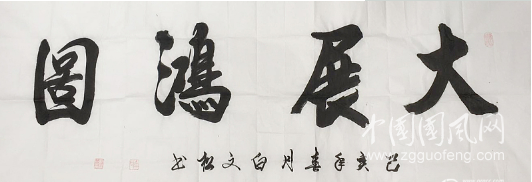 大展鴻圖
己亥年春月白文松书
中国国风网
www.zgguofeng.com